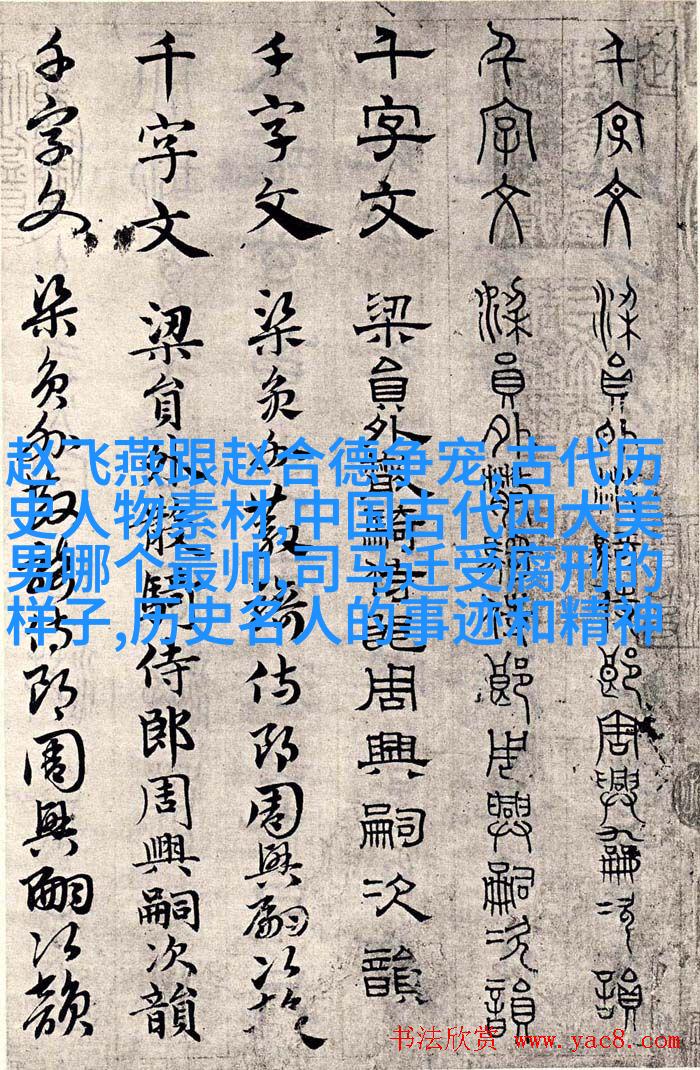 千字文 梁員外散騎侍郎周興嗣次韻
千字文 梁員外散騎侍郎周興嗣次韻
千字文 梁員外散騎侍郎周興嗣次韻
千字文 梁員外散騎侍郎周興嗣次韻
千字文 梁員外散騎侍郎周興嗣次韻
千字文 梁員外散騎侍郎周興嗣次韻
赵飞燕跟赵合德争宠,古代历
史人物素材,中国古代四大美
男哪个最帅,司马迁受腐刑的
样子,历史名人的事迹和精神
书法欣赏 www.yac8.com